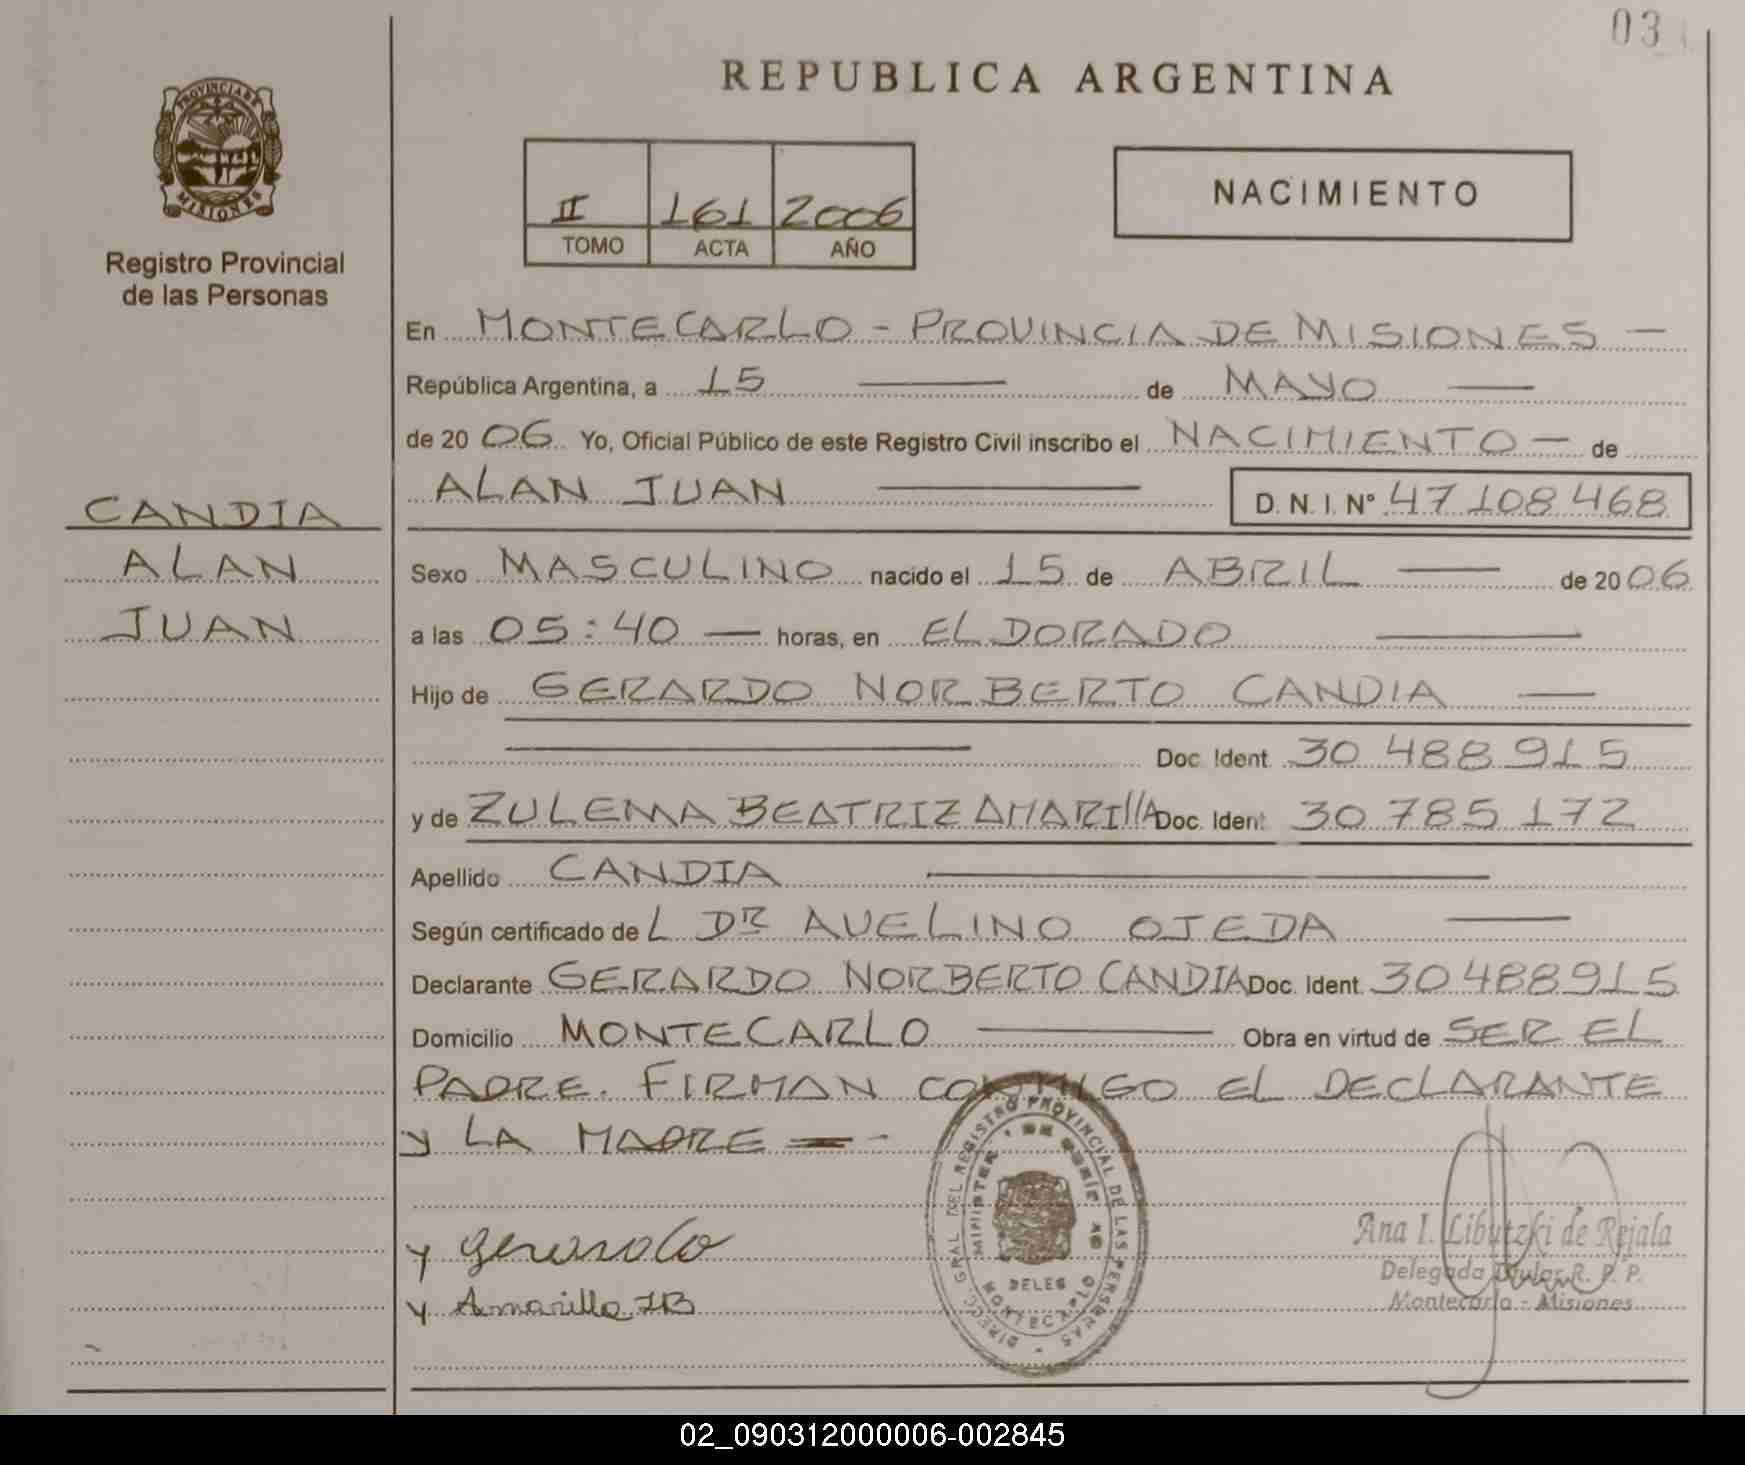 03
PROVINCIA DE
MISIONES
Registro Provincial
de las Personas
REPUBLICA ARGENTINA
II 161 2006
TOMO ACTA AÑO
NACIMIENTO
En MONTECARLO - PROVINCIA DE MISIONES —
República Argentina, a 15 — de MAYO —
de 20 06 Yo, Oficial Público de este Registro Civil inscribo el NACIMIENTO — de
ALAN JUAN — D. N. I. Nº 47108468
CANDIA
ALAN
JUAN
Sexo MASCULINO nacido el 15 de ABRIL — de 20 06
a las 05:40 — horas, en ELDORADO —
Hijo de GERARDO NORBERTO CANDIA —
— Doc. Ident. 30 488 915
y de ZULEMA BEATRIZ AMARIllA Doc. Ident. 30 785 172
Apellido CANDIA —
Según certificado de L DR AVELINO OJEDA —
Declarante GERARDO NORBERTO CANDIA Doc. Ident. 30488915
Domicilio MONTECARLO — Obra en virtud de SER EL
PADRE. FIRMAN CONMIGO EL DECLARANTE
y LA MADRE = -
DIRECC. GRAL. DEL REGISTRO PROVINCIAL DE LAS PERSONAS
DELEG
MONTECARLO
y Amarilla ZB
Ana I. Libutzki de Rejala
Delegada Titular R. P. P.
Montecarlo - Misiones
02_090312000006-002845